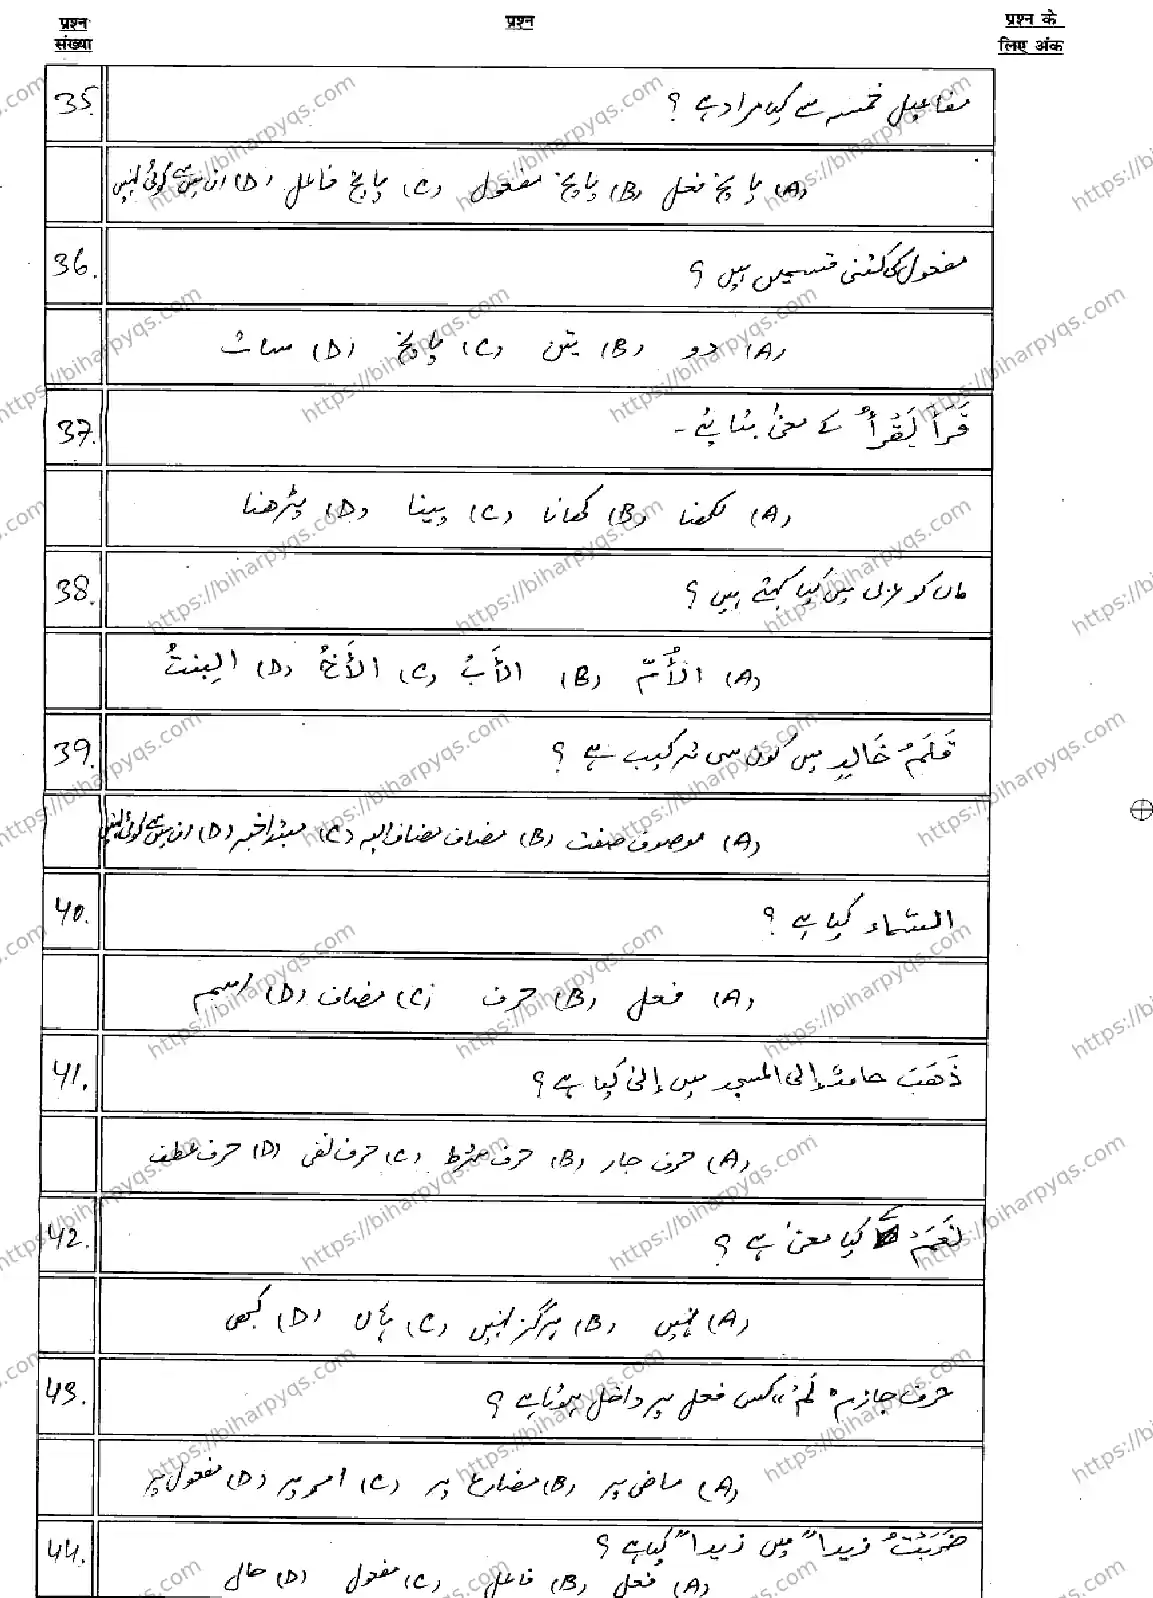 प्रश्न संख्या
प्रश्न
प्रश्न के लिए अंक
35. مفاعیل خمسہ سے کیا مراد ہے ؟
(A) پانچ فعل (B) پانچ مفعول (C) پانچ فاعل (D) ان میں سے کوئی نہیں
36. مفعول کی کتنی قسمیں ہیں ؟
(A) دو (B) تین (C) پانچ (D) سات
37. قَرَأَ یَقْرَأُ کے معنیٰ بتائیے ۔
(A) لکھنا (B) کھانا (C) پینا (D) پڑھنا
38. ماں کو عربی میں کیا کہتے ہیں ؟
(A) الأُمّ (B) الأَبُ (C) الأَخُ (D) البِنتُ
39. قَلَمُ خَالِدٍ میں کون سی ترکیب ہے ؟
(A) موصوف صفت (B) مضاف مضاف الیہ (C) مبتدا خبر (D) ان میں سے کوئی نہیں
40. السّماء کیا ہے ؟
(A) فعل (B) حرف (C) مضاف (D) اسم
41. ذَهَبَ حامدٌ إلی المسجد میں إلیٰ کیا ہے ؟
(A) حرف جار (B) حرف شرط (C) حرف نفی (D) حرف عطف
42. نَعَمْ کے کیا معنیٰ ہے ؟
(A) نہیں (B) ہرگز نہیں (C) ہاں (D) کبھی
43. حرف جازم "لَمْ" کس فعل پر داخل ہوتا ہے ؟
(A) ماضی پر (B) مضارع پر (C) امر پر (D) مفعول پر
44. ضَرَبْتُ زیداً میں زیداً کیا ہے ؟
(A) فعل (B) فاعل (C) مفعول (D) حال
https://biharpyqs.com